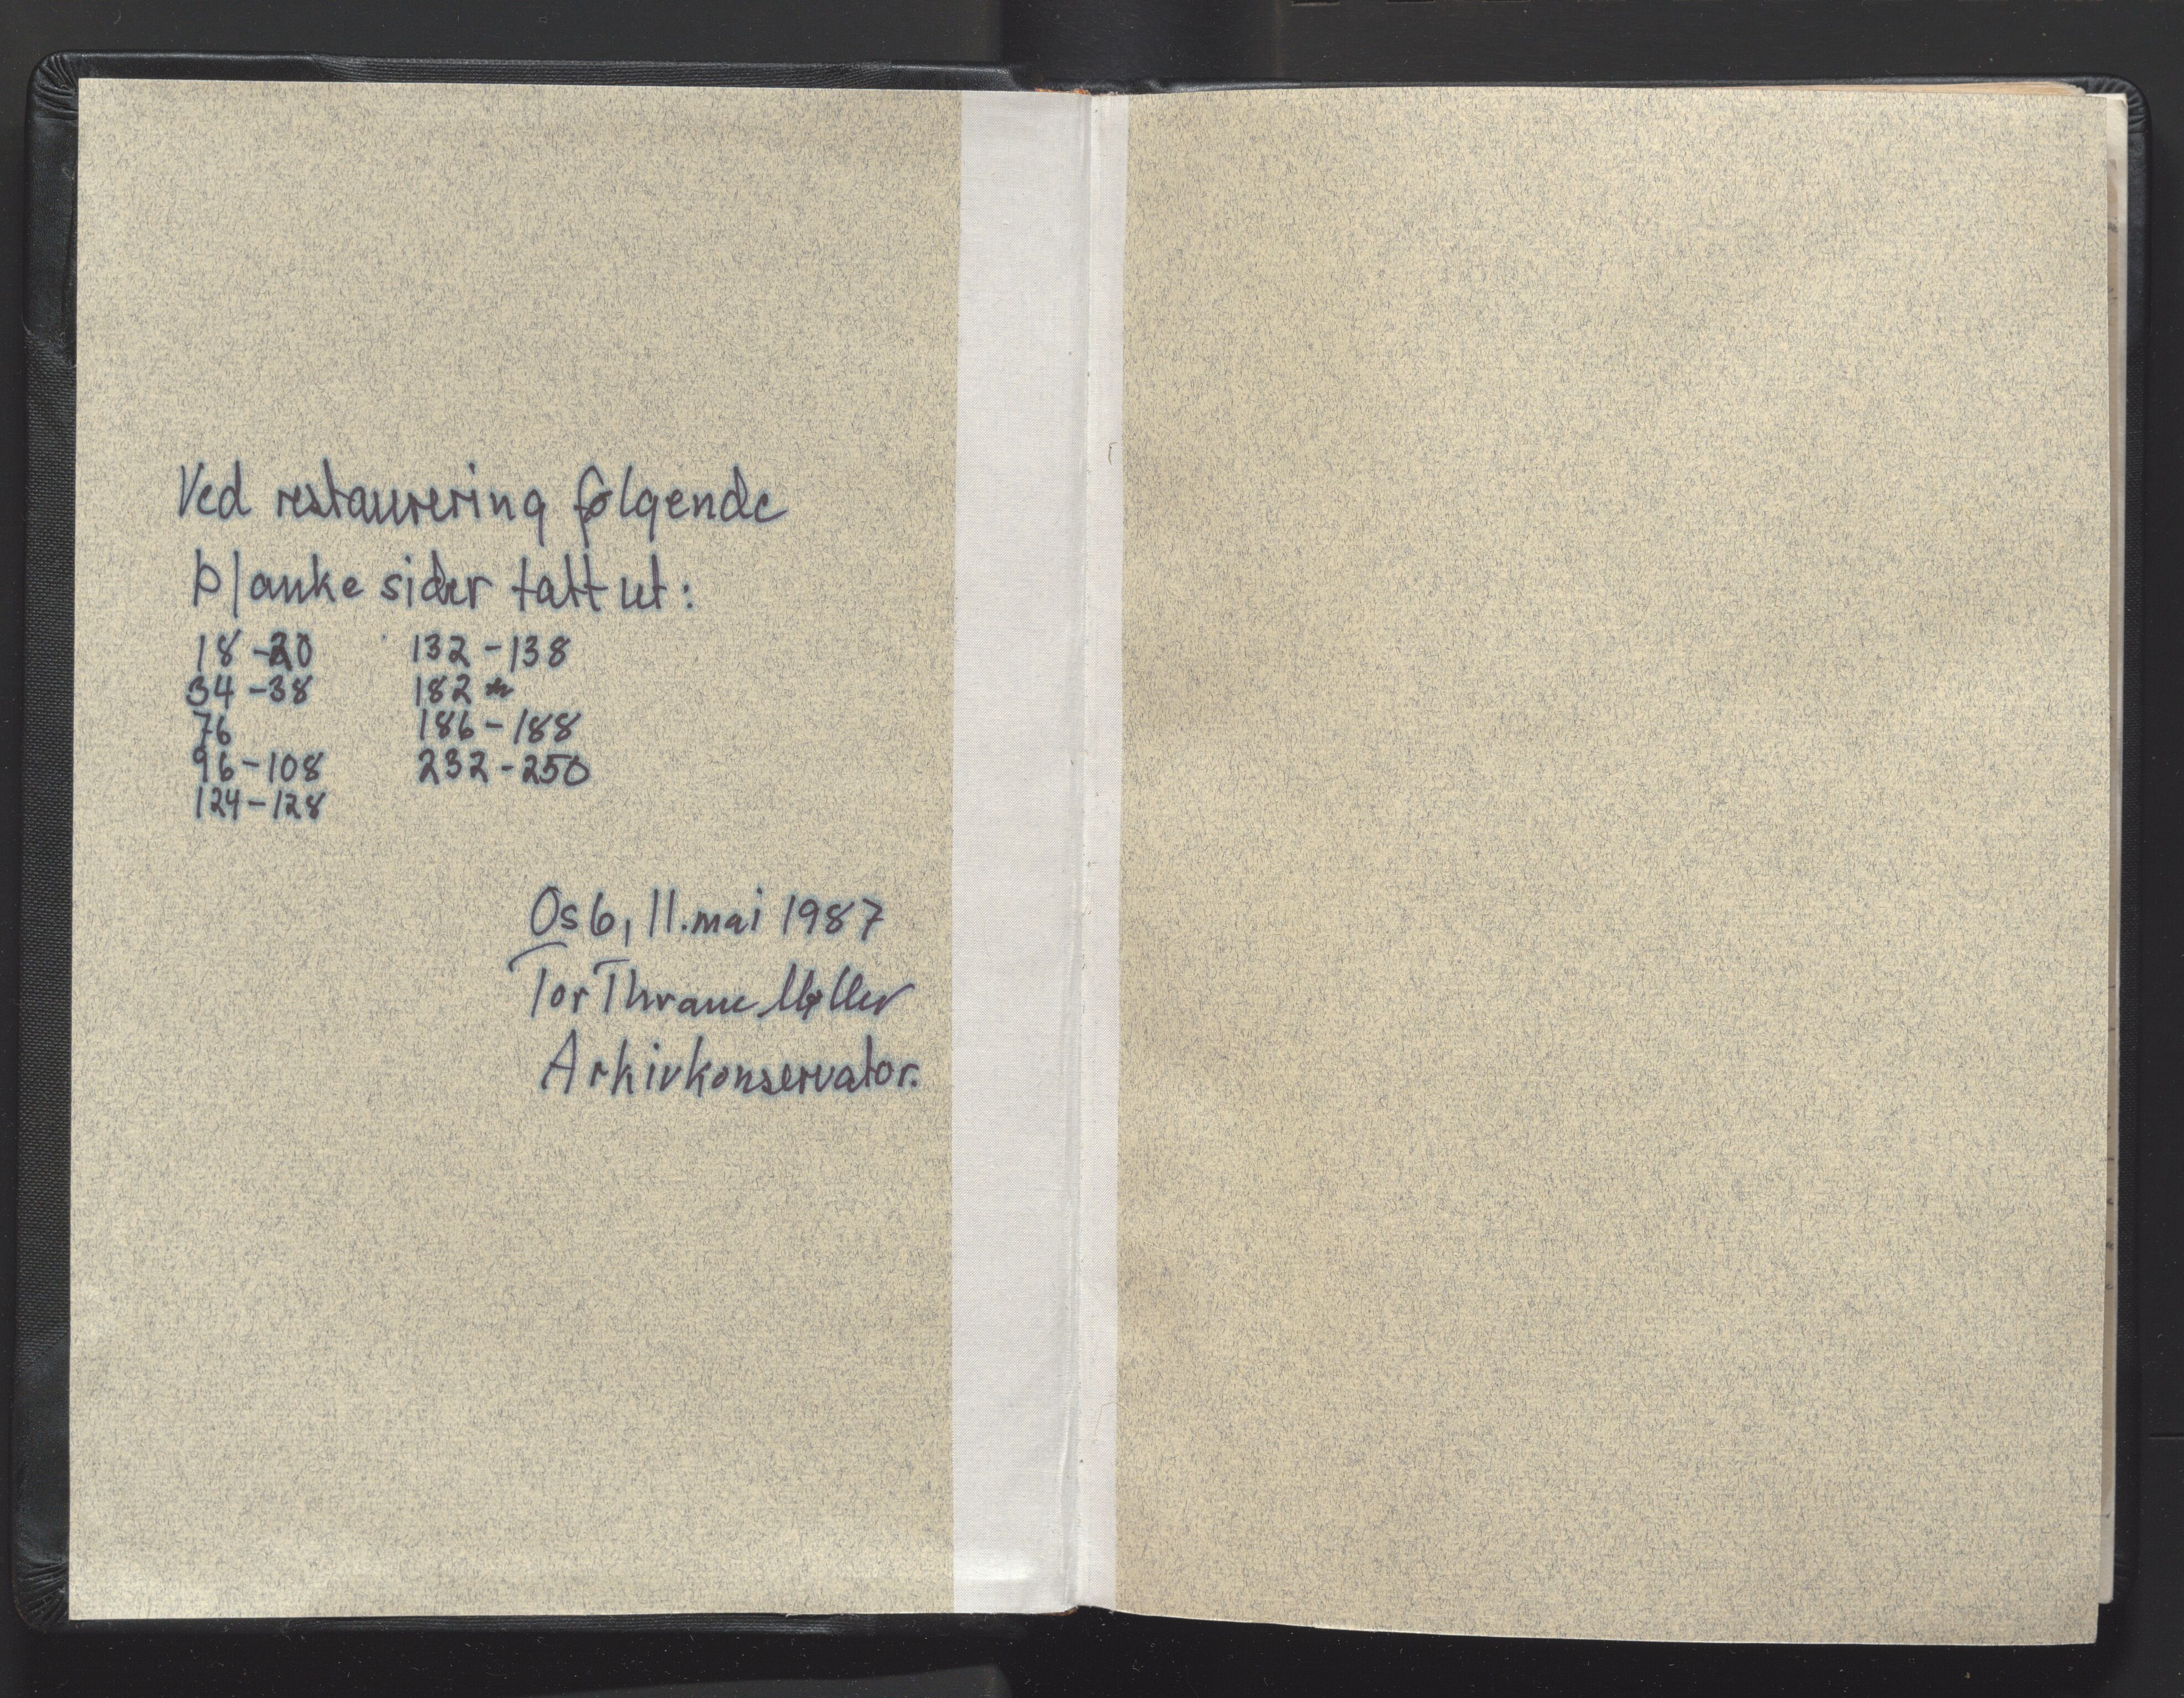 Ved restaurering følgende
blanke sider tatt ut:
18-20
34-38
76
96-108
124-128
132-138
182
186-188
232-250
Oslo, 11. mai 1987
Tor Thrane Møller
Arkivkonservator.